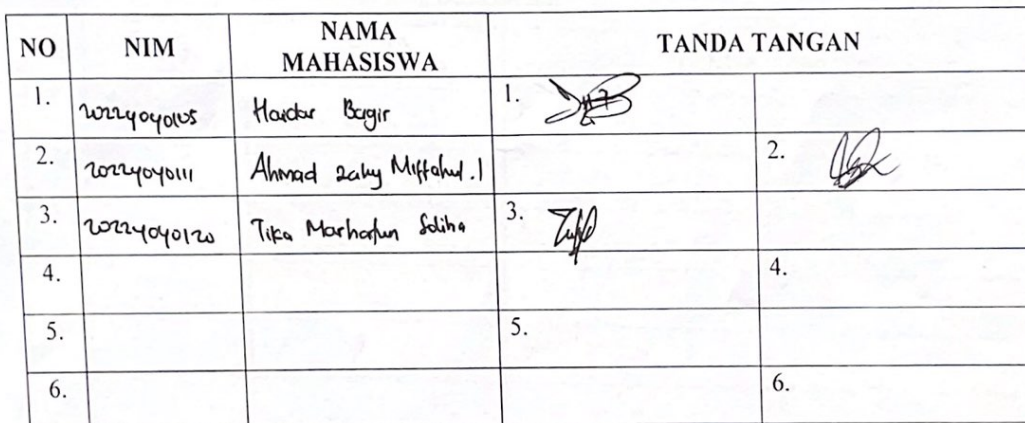 NO NIM NAMA MAHASISWA TANDA TANGAN
1. 20224040105 Haidar Bagir 1.
2. 20224040111 Ahmad zaky Miftahul .I 2.
3. 20224040120 Tika Marhatun Soliha 3.
4. 4.
5. 5.
6. 6.